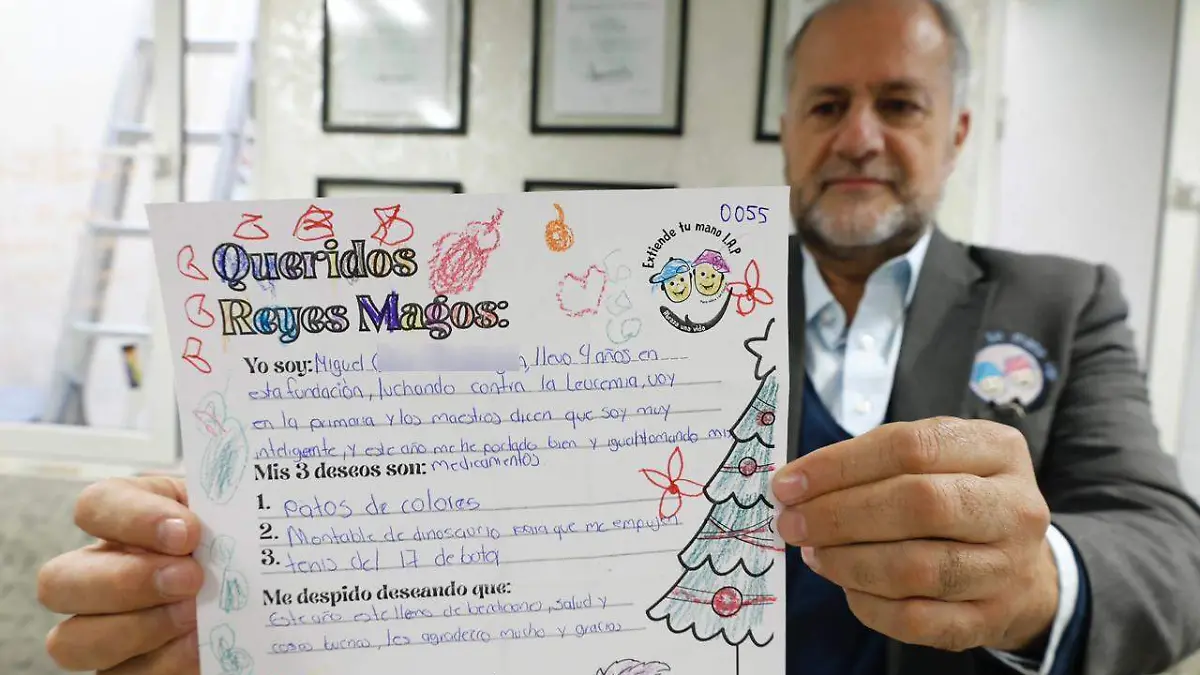 0055
Extiende tu mano I.A.P
Ilumina una vida
Queridos
Reyes Magos:
Yo soy: Miguel ( ), llevo 4 años en
esta fundación, luchando contra la Leucemia, voy
en la primaria y los maestros dicen que soy muy
inteligente, y este año me he portado bien y igual tomando mis
Mis 3 deseos son: medicamentos.
1. patos de colores
2. Montable de dinosaurio para que me empujen
3. tenis del 17 de bota
Me despido deseando que:
Este año este lleno de bendiciones, salud y
cosas buenas, les agradezco mucho y gracias